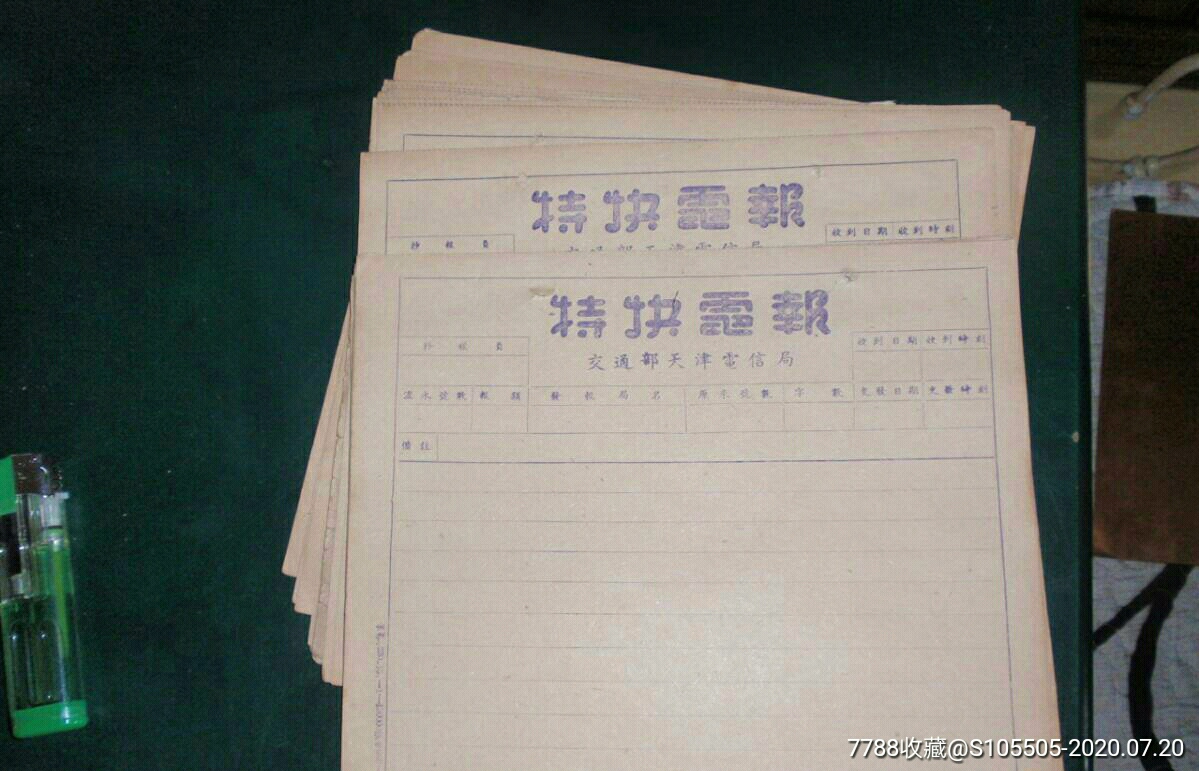 特快電報
抄報員
收到日期 收到時刻
交通部天津電信局
特快電報
抄報員
收到日期 收到時刻
交通部天津電信局
流水號數 報類 發報局名 原來號數 字數 交發日期 交發時刻
備註
7788收藏@S105505-2020.07.20